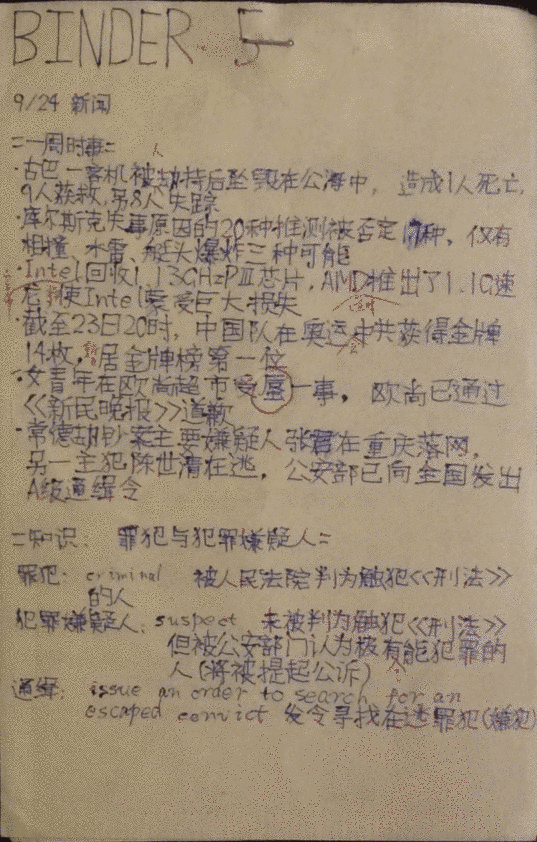 BINDER 5
9/24 新闻
=一周时事=
人
·古巴一客机被劫持后坠毁在公海中，造成1人死亡，
9人获救，另8人失踪
·库尔斯克失事原因的20种推测被否定 种，仅有
相撞、水雷、艇头爆炸三种可能
·Intel回收1.13GHzPⅢ芯片，AMD推出了1.1G速
龙 使Intel蒙受巨大损失
·截至23日20时，中国队在奥运中共获得金牌
会
14枚， 居金牌榜第一位
·女青年在欧尚超市受辱一事， 欧尚已通过
<<新民晚报>>道歉
·常德劫钞案主要嫌疑人张君在重庆落网，
另一主犯陈世清在逃， 公安部已向全国发出
A级通缉令
=知识： 罪犯与犯罪嫌疑人=
罪犯： criminal 被人民法院判为触犯<<刑法>>
的人
犯罪嫌疑人：suspect 未被判为触犯<<刑法>>
但被公安部门认为极有能犯罪的
人(将被提起公诉)
通缉： issue an order to search for an
escaped convict 发令寻找在逃罪犯(嫌犯)